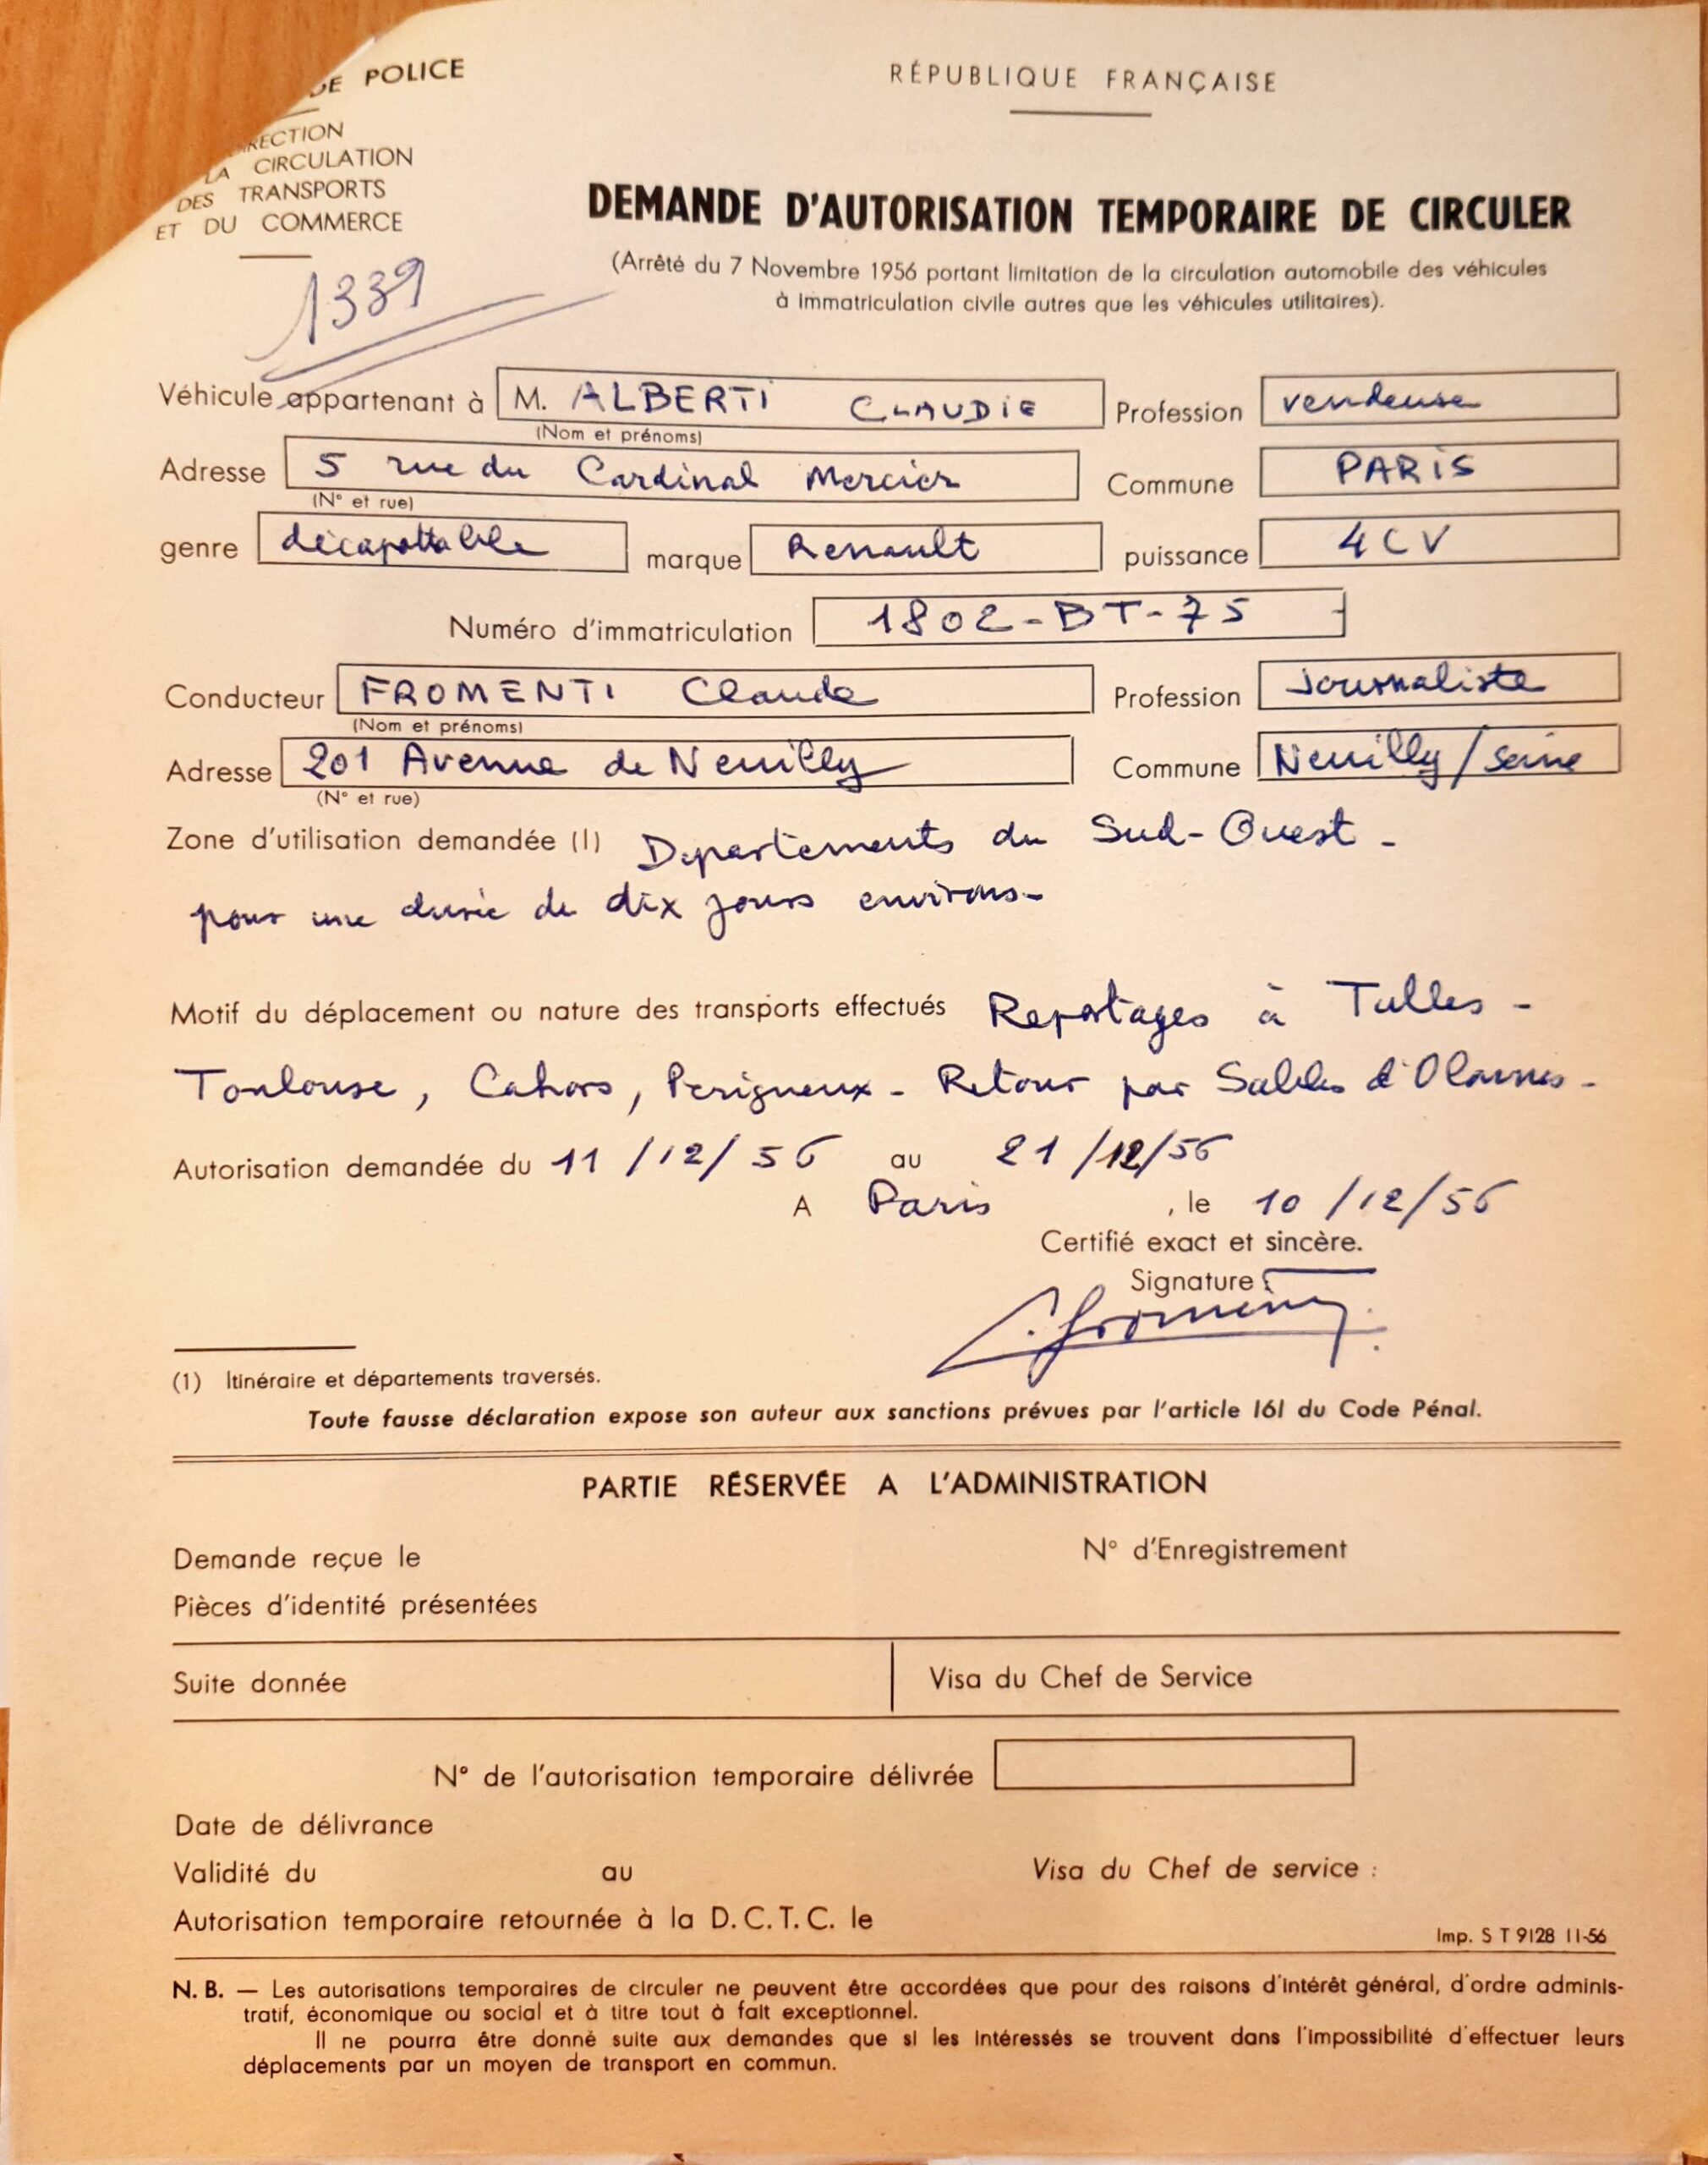 DE POLICE
RÉPUBLIQUE FRANÇAISE
RECTION
LA CIRCULATION
DES TRANSPORTS
ET DU COMMERCE
1339
DEMANDE D'AUTORISATION TEMPORAIRE DE CIRCULER
(Arrêté du 7 Novembre 1956 portant limitation de la circulation automobile des véhicules
à immatriculation civile autres que les véhicules utilitaires).
Véhicule appartenant à M. ALBERTI CLAUDIE Profession vendeuse
(Nom et prénoms)
Adresse 5 rue du Cardinal Mercier Commune PARIS
(N° et rue)
genre décapottable marque Renault puissance 4CV
Numéro d'immatriculation 1802-BT-75
Conducteur FROMENTI Claude Profession Journaliste
(Nom et prénoms)
Adresse 201 Avenue de Neuilly Commune Neuilly/seine
(N° et rue)
Zone d'utilisation demandée (1) Departements du Sud-Ouest -
pour une durée de dix jours environs-
Motif du déplacement ou nature des transports effectués Reportages à Tulles -
Toulouse, Cahors, Perigueux - Retour par Sables d'Olonnes -
Autorisation demandée du 11/12/56 au 21/12/56
A Paris , le 10/12/56
Certifié exact et sincère.
Signature
(1) Itinéraire et départements traversés.
Toute fausse déclaration expose son auteur aux sanctions prévues par l'article 161 du Code Pénal.
PARTIE RÉSERVÉE A L'ADMINISTRATION
Demande reçue le N° d'Enregistrement
Pièces d'identité présentées
Suite donnée Visa du Chef de Service
N° de l'autorisation temporaire délivrée
Date de délivrance
Validité du au Visa du Chef de service :
Autorisation temporaire retournée à la D.C.T.C. le
Imp. S T 9128 11-56
N. B. — Les autorisations temporaires de circuler ne peuvent être accordées que pour des raisons d'intérêt général, d'ordre adminis-
tratif, économique ou social et à titre tout à fait exceptionnel.
Il ne pourra être donné suite aux demandes que si les intéressés se trouvent dans l'impossibilité d'effectuer leurs
déplacements par un moyen de transport en commun.